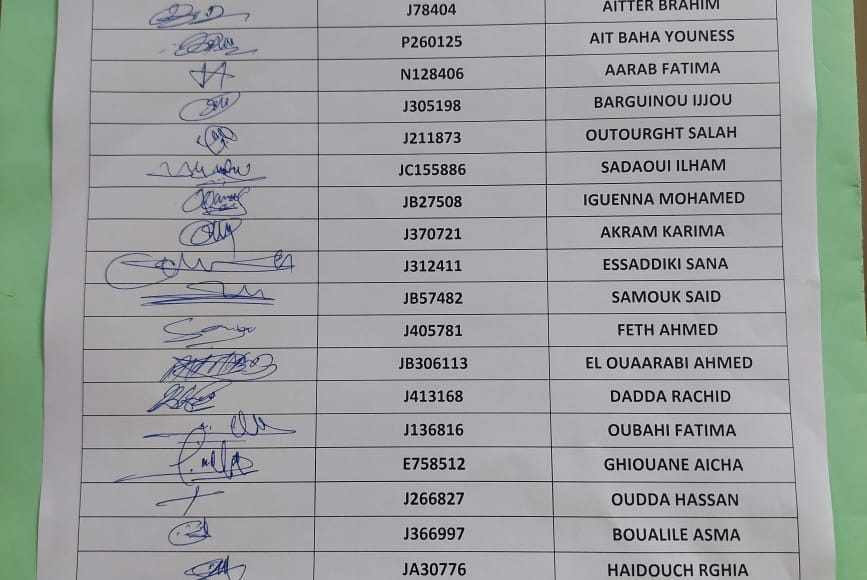 J78404 AITTER BRAHIM
P260125 AIT BAHA YOUNESS
N128406 AARAB FATIMA
J305198 BARGUINOU IJJOU
J211873 OUTOURGHT SALAH
JC155886 SADAOUI ILHAM
JB27508 IGUENNA MOHAMED
J370721 AKRAM KARIMA
J312411 ESSADDIKI SANA
JB57482 SAMOUK SAID
J405781 FETH AHMED
JB306113 EL OUAARABI AHMED
J413168 DADDA RACHID
J136816 OUBAHI FATIMA
E758512 GHIOUANE AICHA
J266827 OUDDA HASSAN
J366997 BOUALILE ASMA
JA30776 HAIDOUCH RGHIA